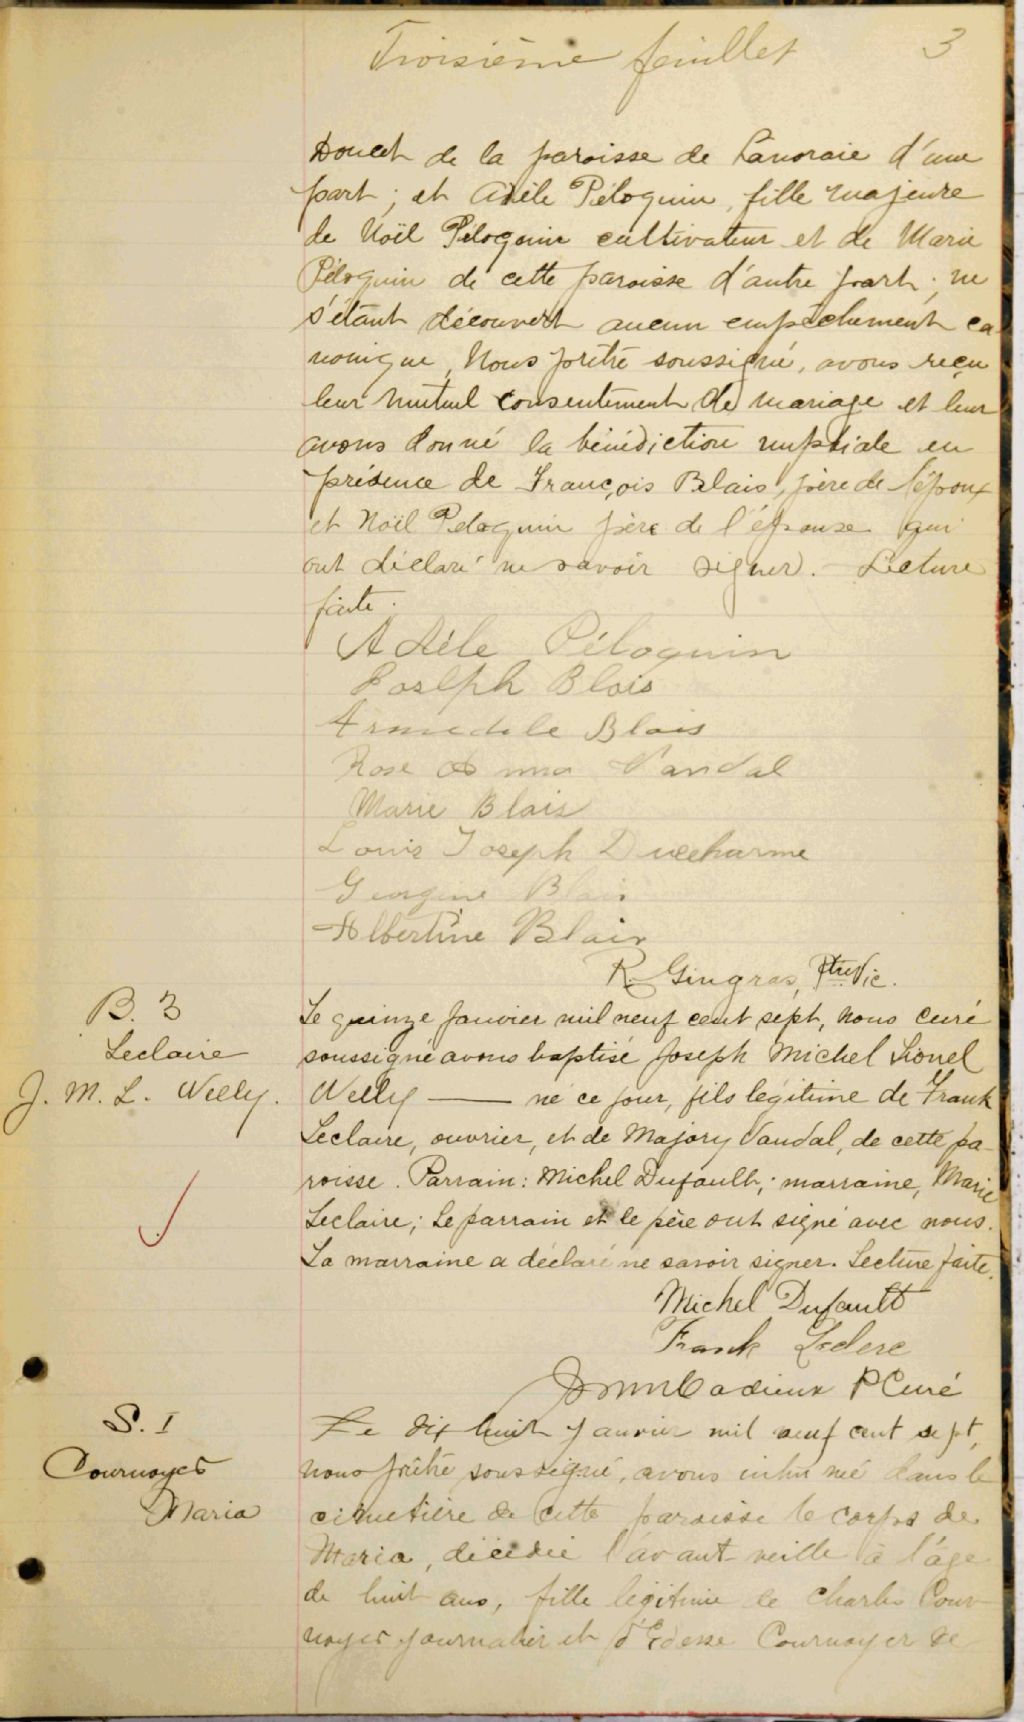 Troisième feuillet 3
Doucet de la paroisse de Lanoraie d'une
part; et Adèle Péloquin, fille majeure
de Noël Péloquin cultivateur et de Marie
Péloquin de cette paroisse d'autre part; ne
s'étant découvert aucun empêchement ca
nonique, Nous prêtre soussigné, avons reçu
leur mutuel consentement de mariage et leur
avons donné la bénédiction nuptiale en
présence de François Blais, père de l'époux
et Noël Peloquin père de l'épouse qui
ont déclaré ne savoir signer. - Lecture
faite.
Adèle Péloquin
Joseph Blais
Blais
Rose Anna Vandal
Marie Blais
Louis Joseph Ducharme
Georgine Blais
Albertine Blais
R. Gingras, Ptre Vic.
B. 3
Leclaire
J. M. L. Welly.
Le quinze Janvier mil neuf cent sept, nous curé
soussigné avons baptisé Joseph Michel Lionel
Welly —— né ce jour, fils légitime de Frank
Leclaire, ouvrier, et de Majory Vandal, de cette pa-
roisse. Parrain: Michel Dufault; marraine, Marie
Leclaire; Le parrain et le père ont signé avec nous.
La marraine a déclaré ne savoir signer. Lecture faite.
Michel Dufault
Frank Leclerc
Cadieux P Curé
S. 1
Cournoyer
Maria
Le dix huit Janvier mil neuf cent sept,
nous prêtre soussigné, avons inhumé dans le
cimetière de cette paroisse le corps de
Maria, décédée l'avant-veille à l'âge
de huit ans, fille légitime de Charles Cour-
noyer journalier et d'Edesse Cournoyer de